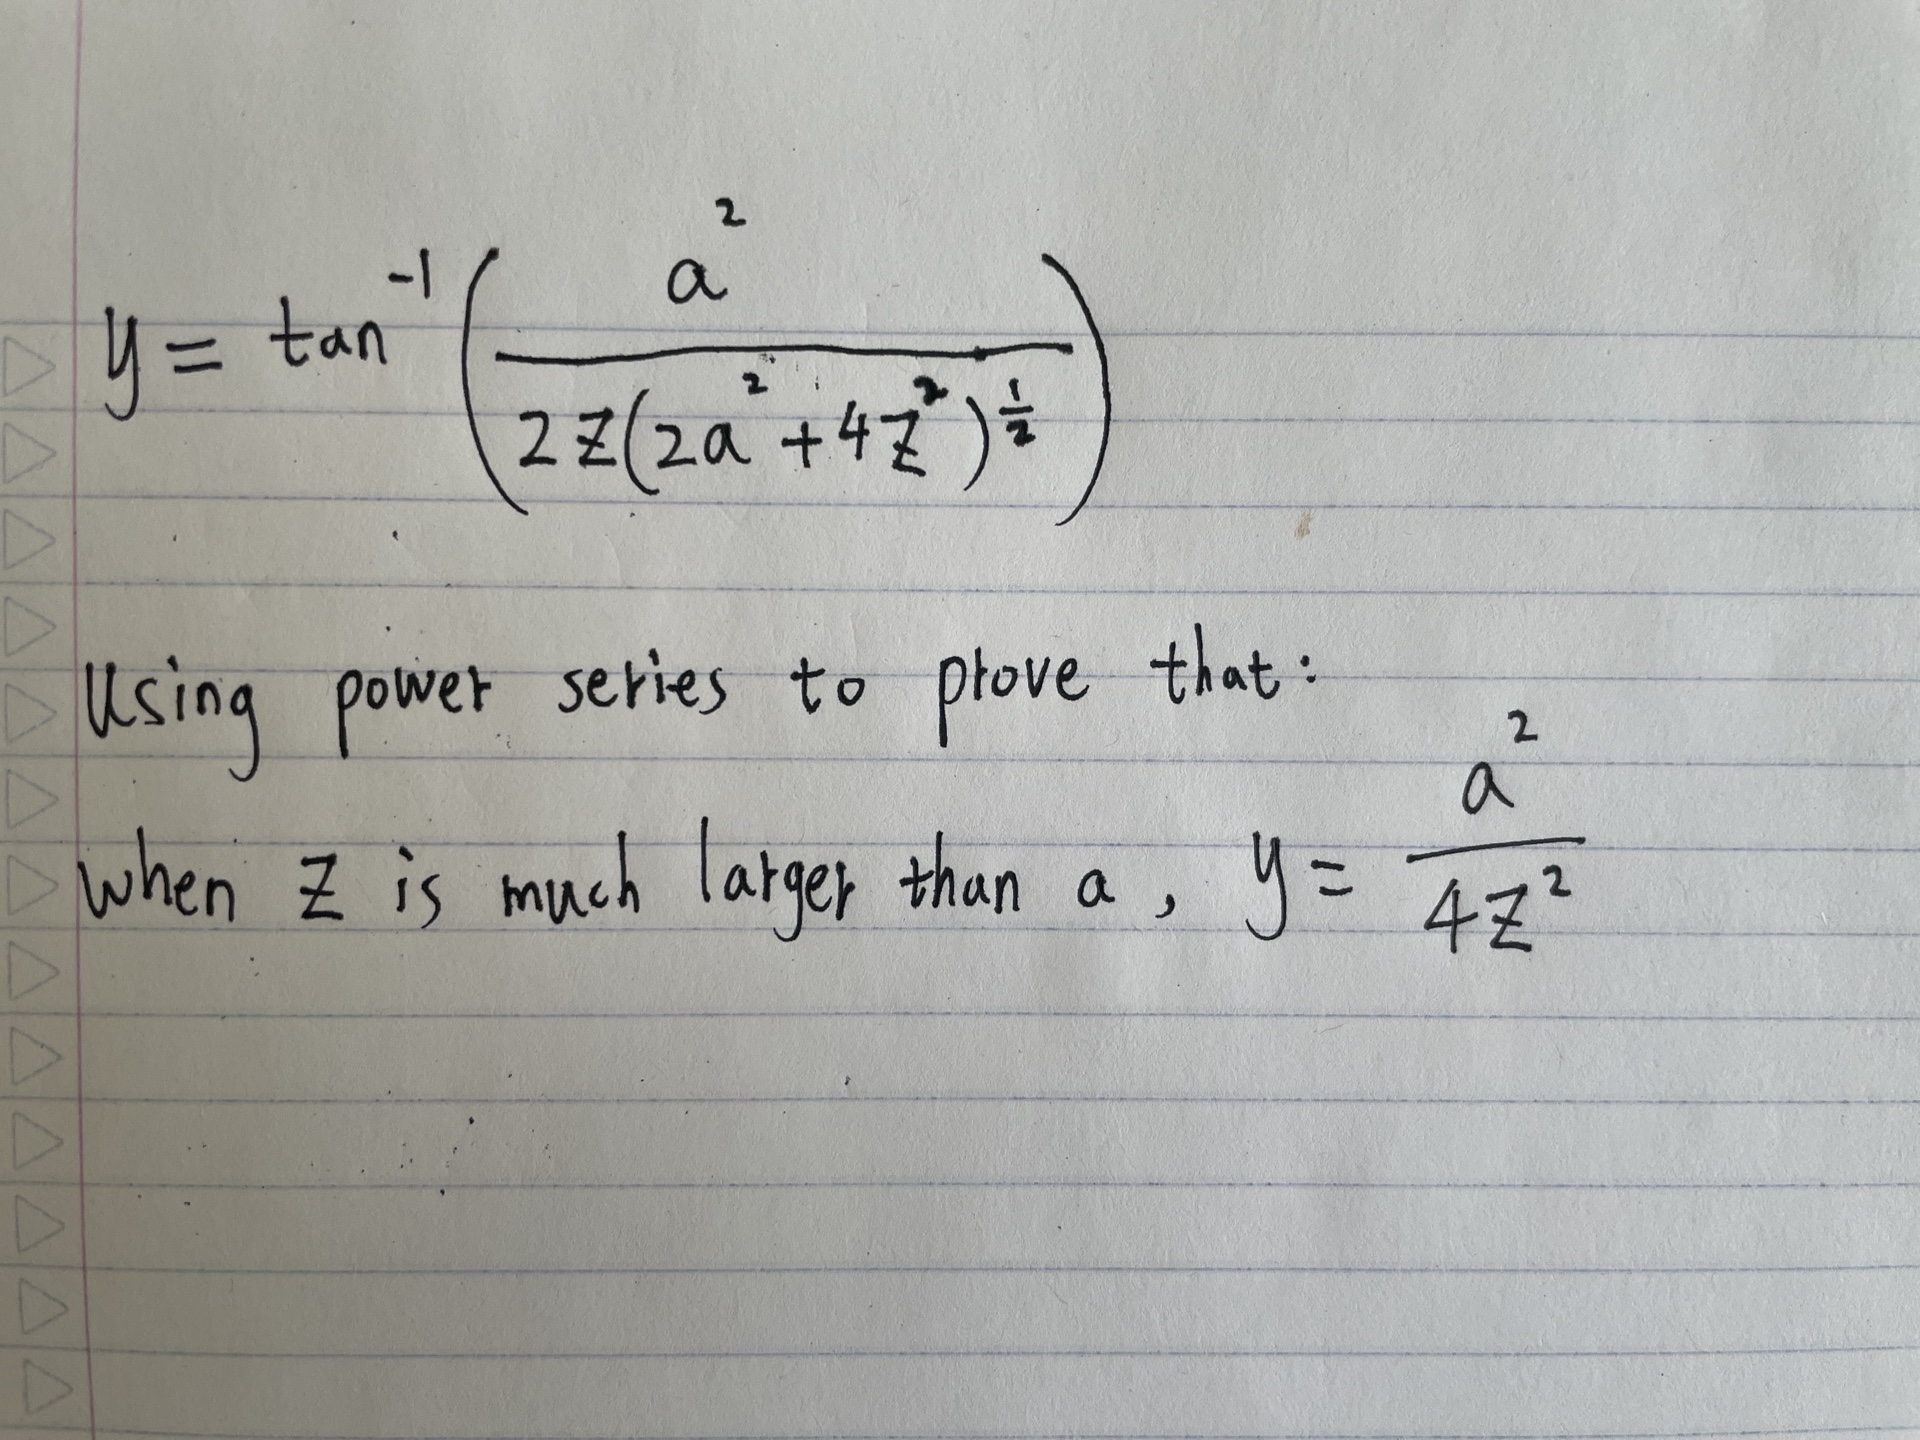 y = tan⁻¹ ( a² / 2z(2a² + 4z²)^½ )
Using power series to prove that:
when z is much larger than a, y = a² / 4z²